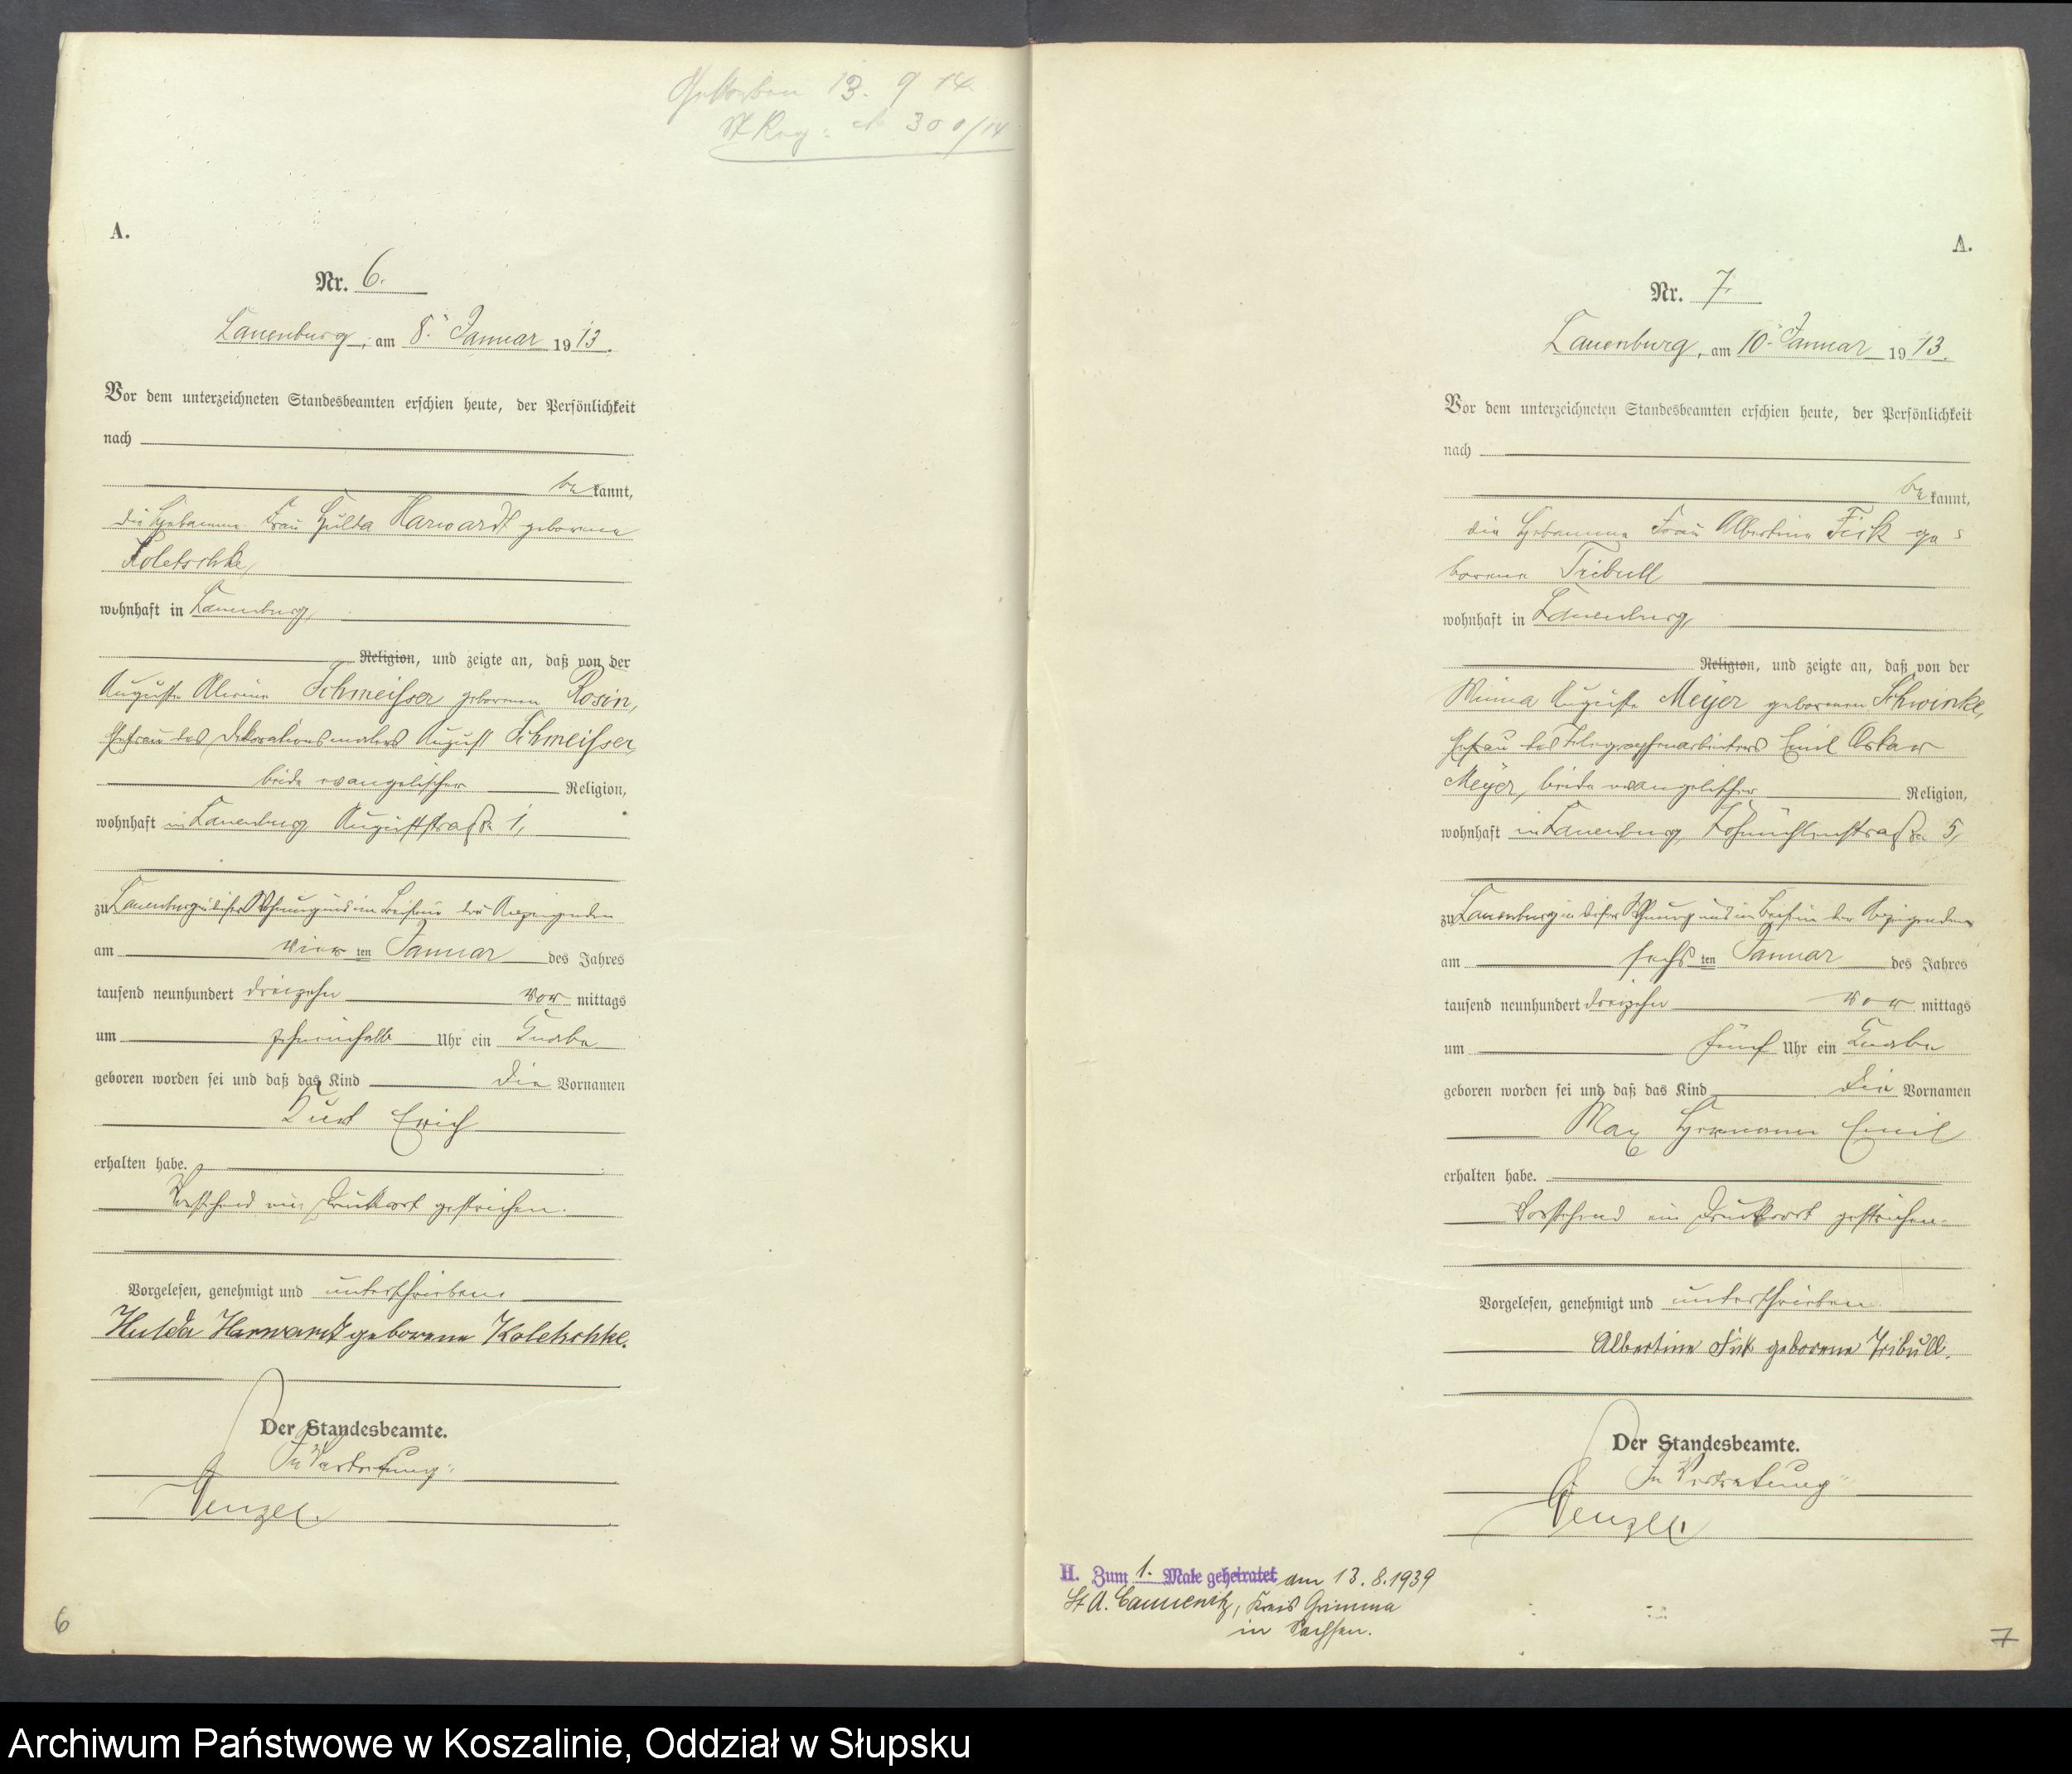 Gestorben 13. 9 14.
St Reg: № 300/14
A.
Nr. 6.
Lauenburg, am 8. Januar 1913.
Vor dem unterzeichneten Standesbeamten erschien heute, der Persönlichkeit
nach
be kannt,
die Hebamme Frau Hulda Harwardt geborene
Koletschke,
wohnhaft in Lauenburg,
Religion, und zeigte an, daß von der
Auguste Alwine Schmeisser geborenen Rosin,
Ehefrau des Dekorationsmalers August Schmeisser,
beide evangelischer Religion,
wohnhaft in Lauenburg Auguststraße 1,
zu Lauenburg in dieser Wohnung und im Beisein der Anzeigenden
am vier ten Januar des Jahres
tausend neunhundert dreizehn vor mittags
um zehneinhalb Uhr ein Knabe
geboren worden sei und daß das Kind die Vornamen
Kurt Erich
erhalten habe.
Vorstehend ein Druckwort gestrichen.
Vorgelesen, genehmigt und unterschrieben
Hulda Harwardt geborene Koletschke.
Der Standesbeamte.
In Vertretung:
Wenzel.
6
A.
Nr. 7.
Lauenburg, am 10. Januar 1913.
Vor dem unterzeichneten Standesbeamten erschien heute, der Persönlichkeit
nach
be kannt,
die Hebamme Frau Albertine Fick ge=
borene Tribull
wohnhaft in Lauenburg
Religion, und zeigte an, daß von der
Minna Auguste Meyer geborenen Schwinke,
Ehefrau des Telegraphenarbeiters Emil Oskar
Meyer, beide evangelischer Religion,
wohnhaft in Lauenburg, Lohmühlenstraße 5,
zu Lauenburg in dieser Wohnung und im Beisein der Anzeigenden
am sechs ten Januar des Jahres
tausend neunhundert dreizehn vor mittags
um fünf Uhr ein Knabe
geboren worden sei und daß das Kind die Vornamen
Max Hermann Emil
erhalten habe.
Vorstehend ein Druckwort gestrichen.
Vorgelesen, genehmigt und unterschrieben
Albertine Fick geborene Tribull.
Der Standesbeamte.
In Vertretung
Wenzel.
H. Zum 1. Male geheiratet am 13.8.1939
St A. Cannewitz, Kreis Grimma
in Sachsen.
7
Archiwum Państwowe w Koszalinie, Oddział w Słupsku